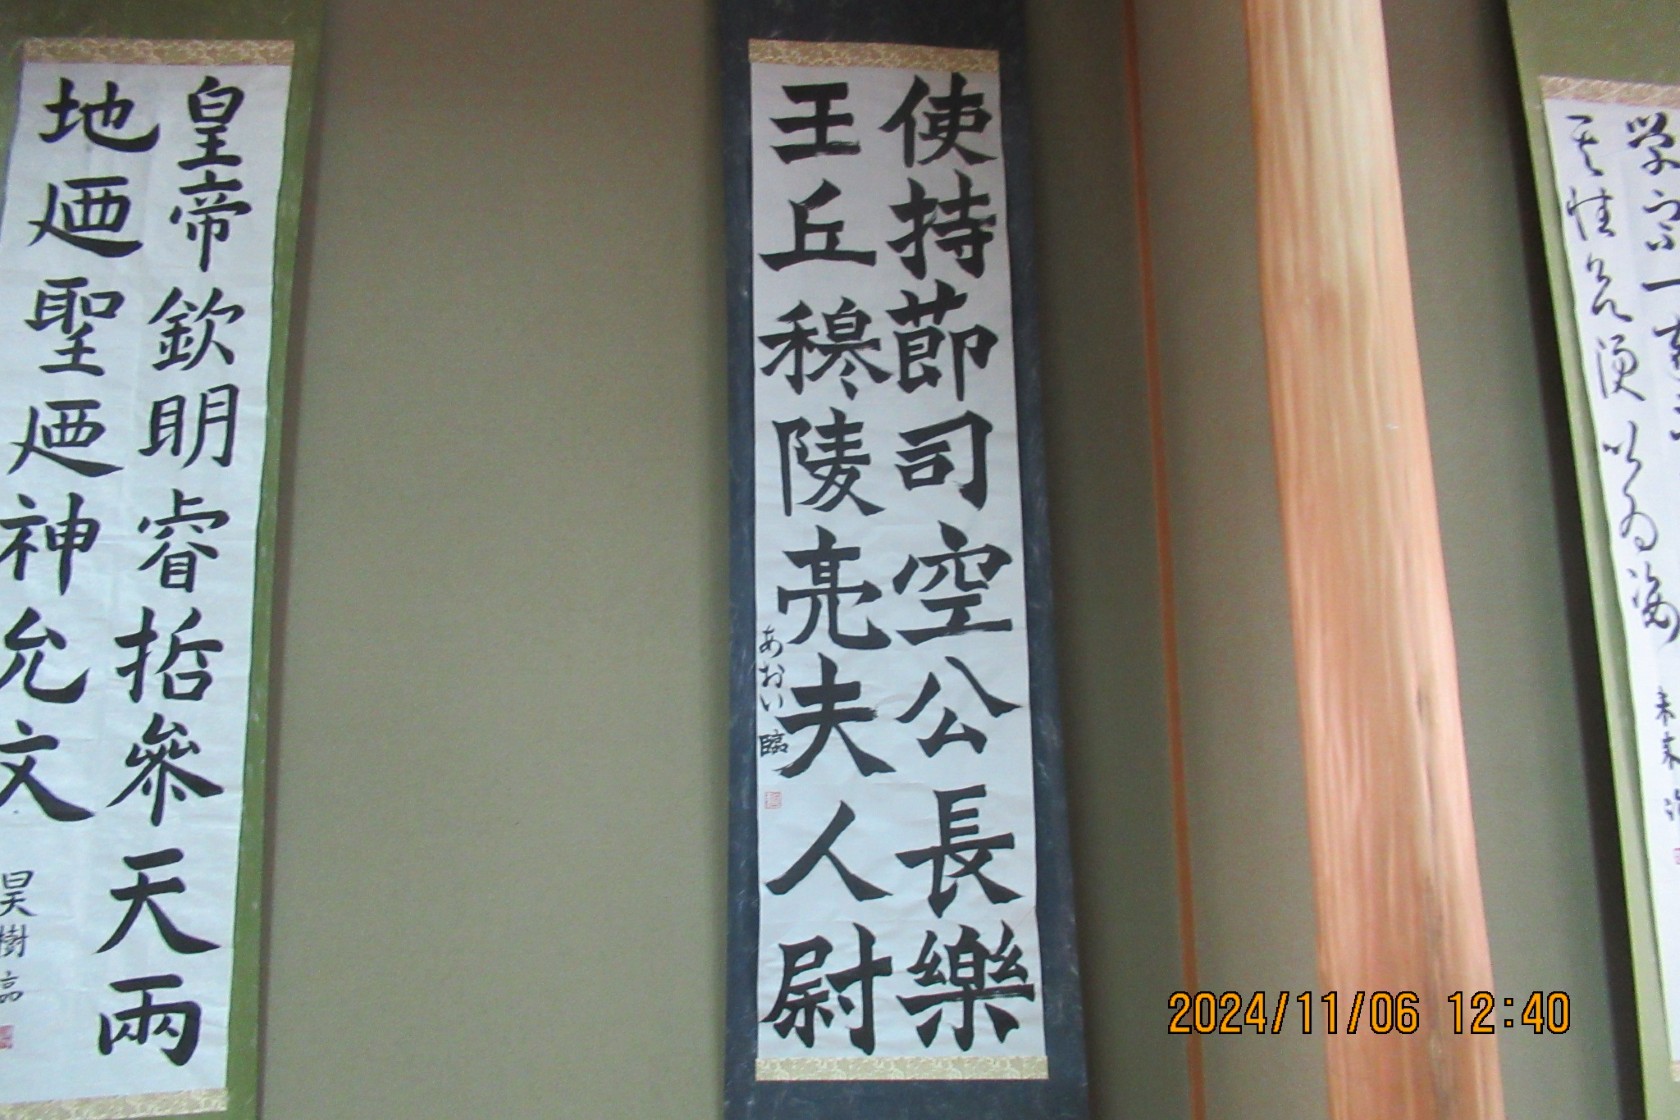 使持節司空公長樂
王丘穆陵亮夫人尉
あおい臨
皇帝欽明睿哲參天兩
地廼聖廼神允文
昊樹臨
2024/11/06 12:40